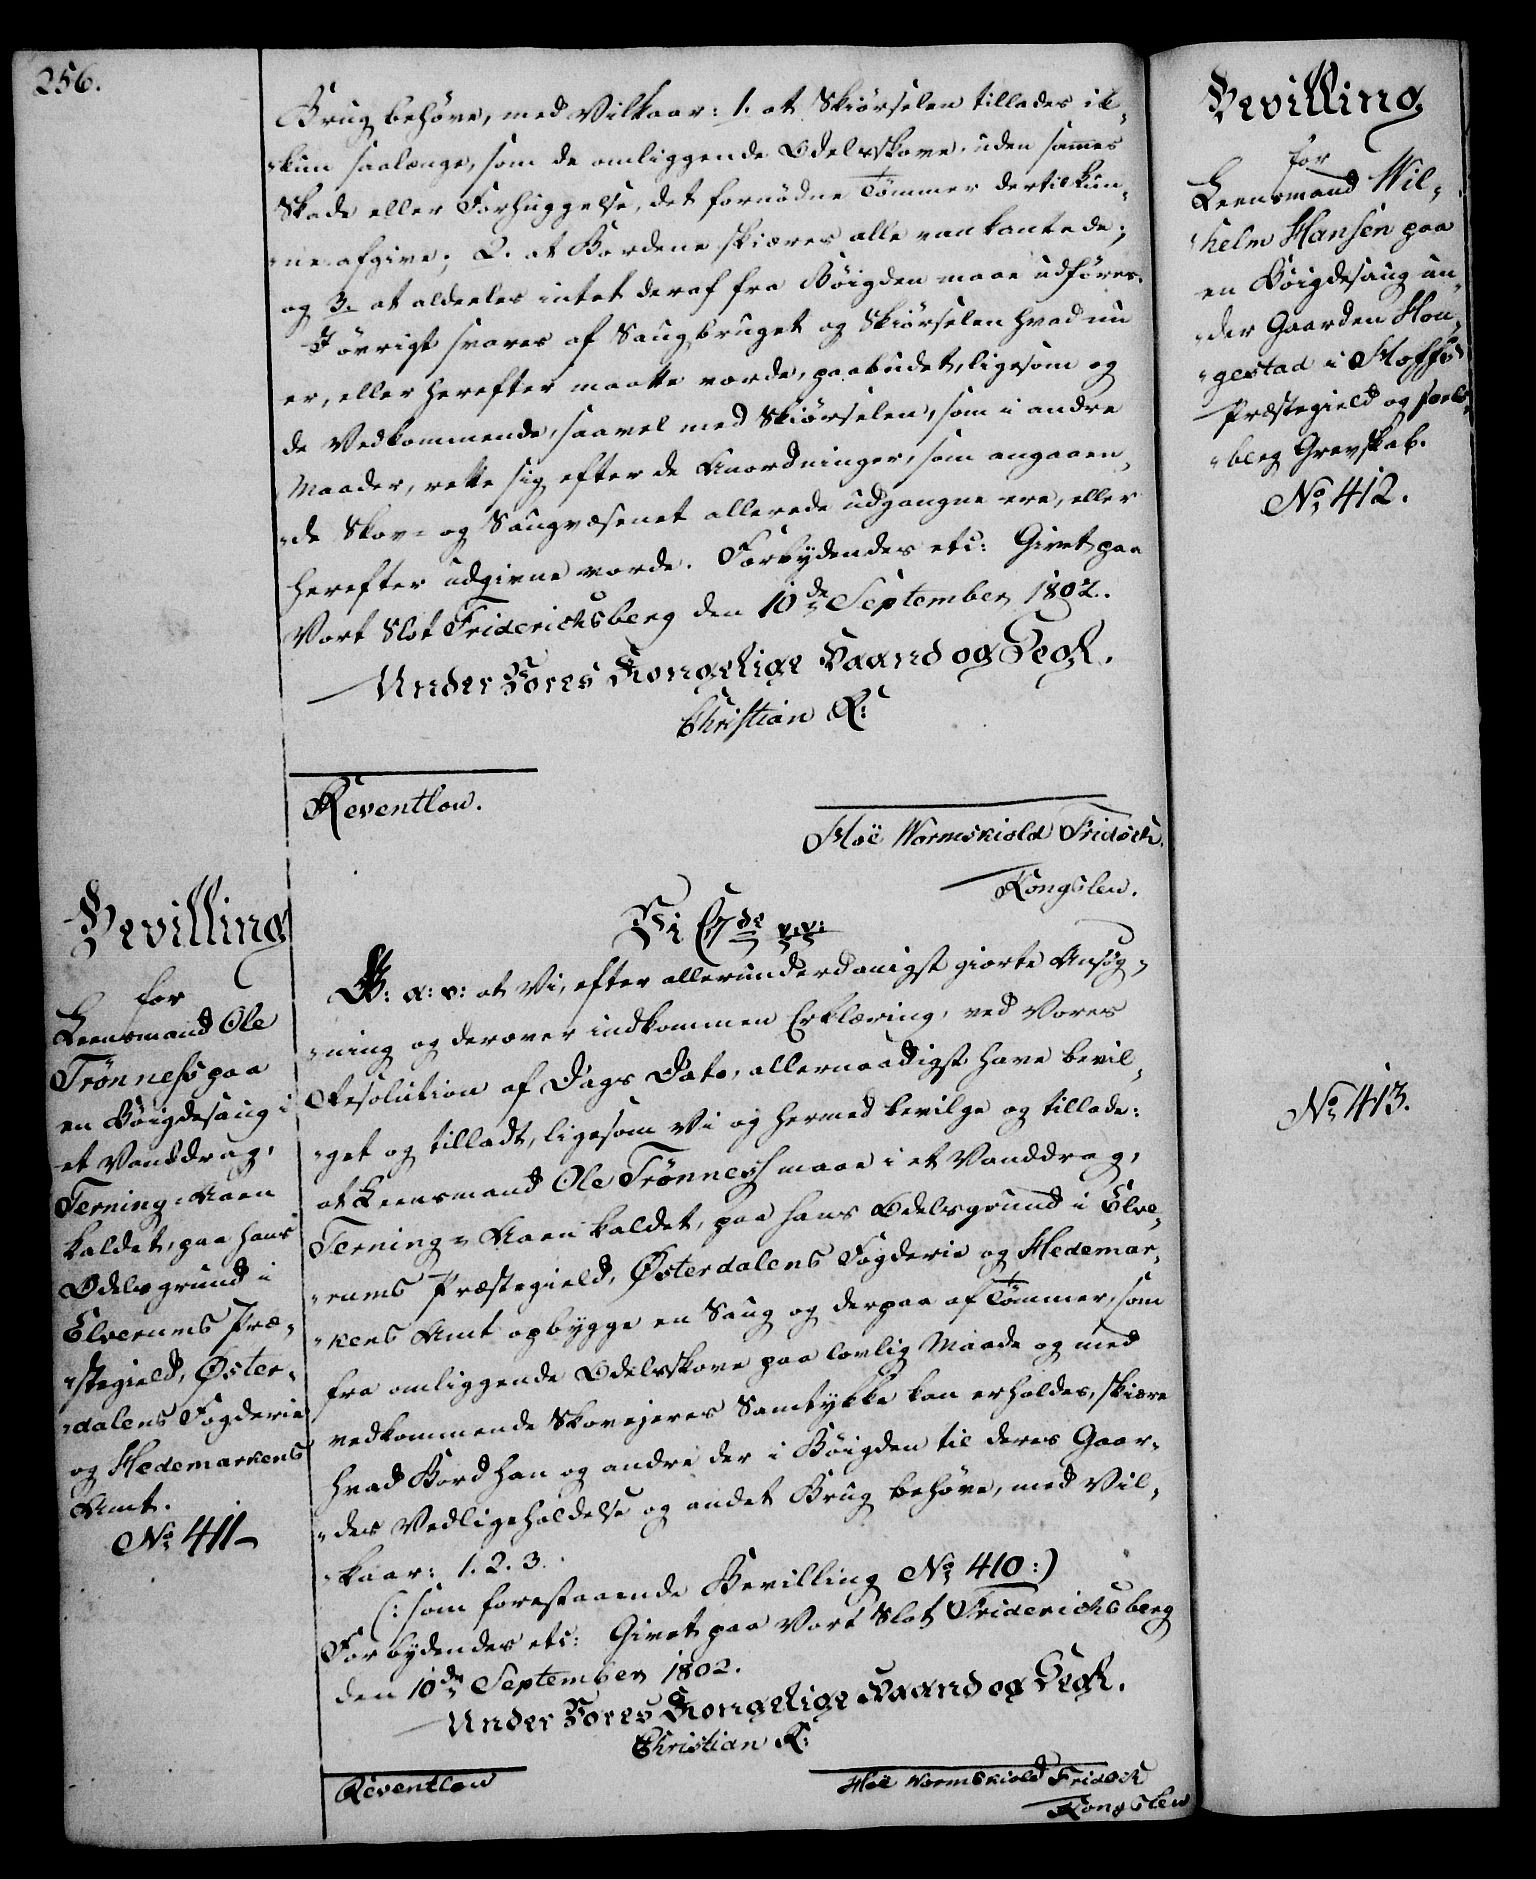 256.
Brug behöve, med Vilkaar: 1. at Skiörselen tillades ik-
-kun saalænge, som de omliggende Odelsskove, uden sammes
Skade eller Forhuggelse, det fornödne Tömmer dertil kun-
-ne afgive; 2. at Bordene skiæres alle vankantede;
og 3. at aldeeles intet deraf fra Böigden maae udföres.
Iövrigt svares af Saugbruget og Skiörselen hvad nu
er, eller herefter maatte vorde, paabudet, ligesom og
de Vedkommende, saavel med Skiörselen, som i andre
Maader, rette sig efter de Anordninger, som angaaen-
-de Skov- og Saugvæsenet allerede udgangne ere, eller
herefter udgivne vorde. Forbydendes etc: Givet paa
Vort Slot Friderichsberg den 10de September 1802.
Under Vores Kongelige Haand og Segl.
Christian R:
Reventlow.
Hoë Wormskiold Fridsch.
Kongslew.
Bevilling
for
Leensmand Ole
Trönness paa
en Böigdesaug i
et Vanddrag,
Terning-Aaen
kaldet, paa hans
Odelsgrund i
Elverums Præ-
-stegield, Öster-
-dalens Fogderie
og Hedemarkens
Amt.
No 411
Vi C. 7de v:v:
G: A: V: at Vi, efter allerunderdanigst giorte Ansög-
-ning og derover indkommen Erklæring, ved Vores
Resolution af Dags Dato, allernaadigst have bevil-
-get og tilladt, ligesom Vi og hermed bevilge og tillade:
at Leensmand Ole Trönness maae i et Vanddrag,
Terning-Aaen kaldet, paa hans Odelsgrund i Elve-
-rums Præstegield, Österdalens Fogderie og Hedemar-
-kens Amt opbygge en Saug og derpaa af Tömmer, som
fra omliggende Odelsskove paa lovlig Maade og med
vedkommende Skovejeres Samtykke kan erholdes, skiære
hvad Bord han og andre der i Böigden til deres Gaar-
-des Vedligeholdelse og andet Brug behöve, med Vil-
-kaar: 1. 2. 3.
(: som forestaaende Bevilling No 410 :)
Forbydendes etc: Givet paa Vort Slot Friderichsberg
den 10de September 1802.
Under Vores Kongelige Haand og Segl.
Christian R:
Reventlow
Hoë Wormskiold Fridsch
Kongslew
Bevilling
for
Leensmand Wil-
-helm Hansen paa
en Böigdesaug un-
-der Gaarden Hou-
-gestad i
Præstegield og Jarls-
-berg Grevskab.
No 412.
No 413.